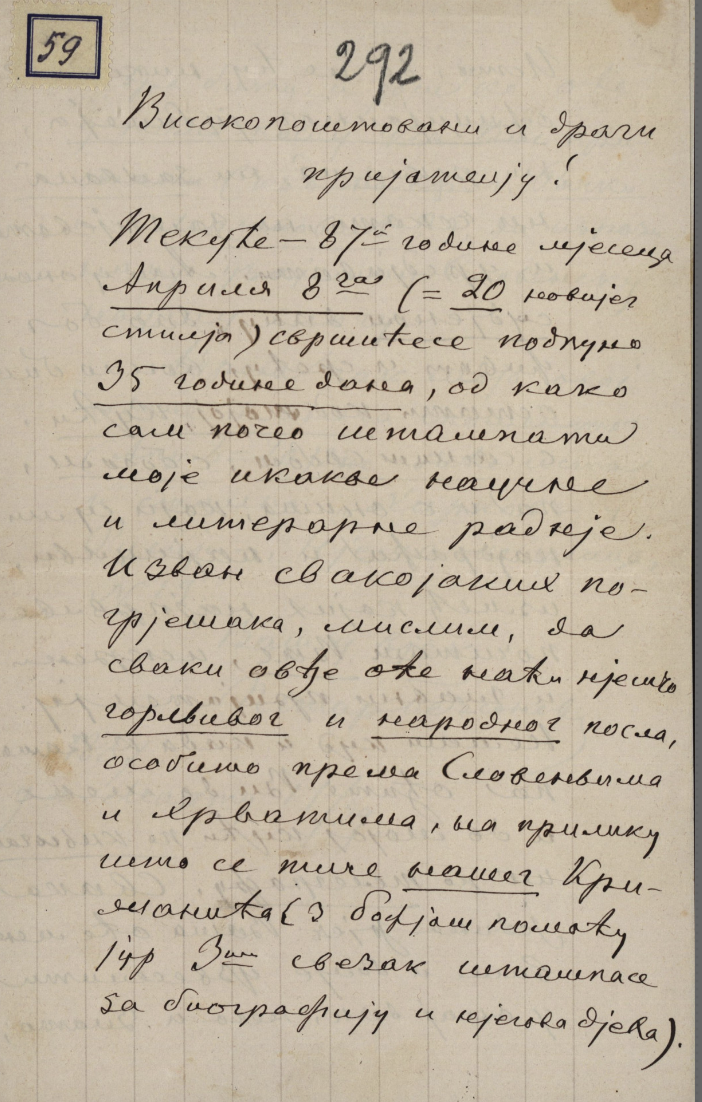 59
292
Високопоштовани и драги
пријатељу!
Текуће – 87й године мјесеца
Априля 8га (= 20 новијег
стиля) свршићесе подпуно
35 године дана, од како
сам почео штампати
моје икакве научне
и литерарне радње.
Изван свакојаких по-
грјешака, мислим, да
сваки овђе оће наћи нјешто
горљивог и народног посла,
особито према Словенвима
и Хрватима, на прилику
што се тиче нашег Кри-
жанића (3 помоћу
јер 3им свезак штампасе
за биографију и његова дјела).